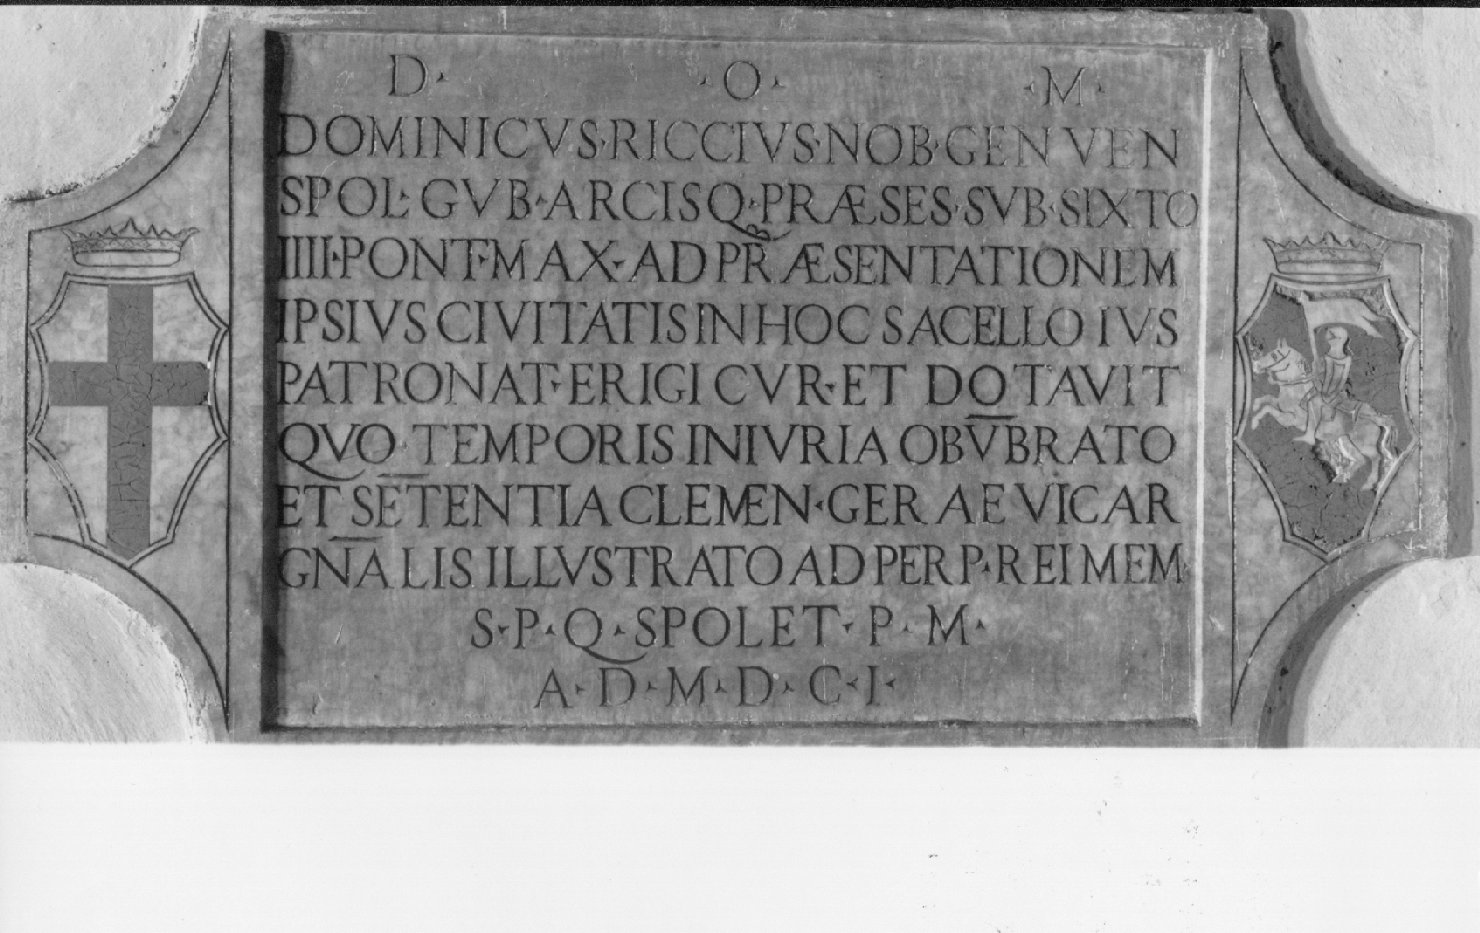 D · O · M ·
DOMINICVS·RICCIVS·NOB·GEN VEN
SPOL·GVB·ARCISQ·PRÆSES·SVB·SIXTO
IIII·PONT·MAX·AD PRÆSENTATIONEM
IPSIVS CIVITATIS IN HOC SACELLO IVS
PATRONAT·ERIGI CVR·ET DOTAVIT
QVO TEMPORIS INIVRIA OBV̄BRATO
ET SĒTENTIA CLEMÆN·GER AE VICAR
GN̄ALIS ILLVSTRATO AD PERP·REI MEM
S·P·Q·SPOLET·P·M·
A·D·M·D·C·I·